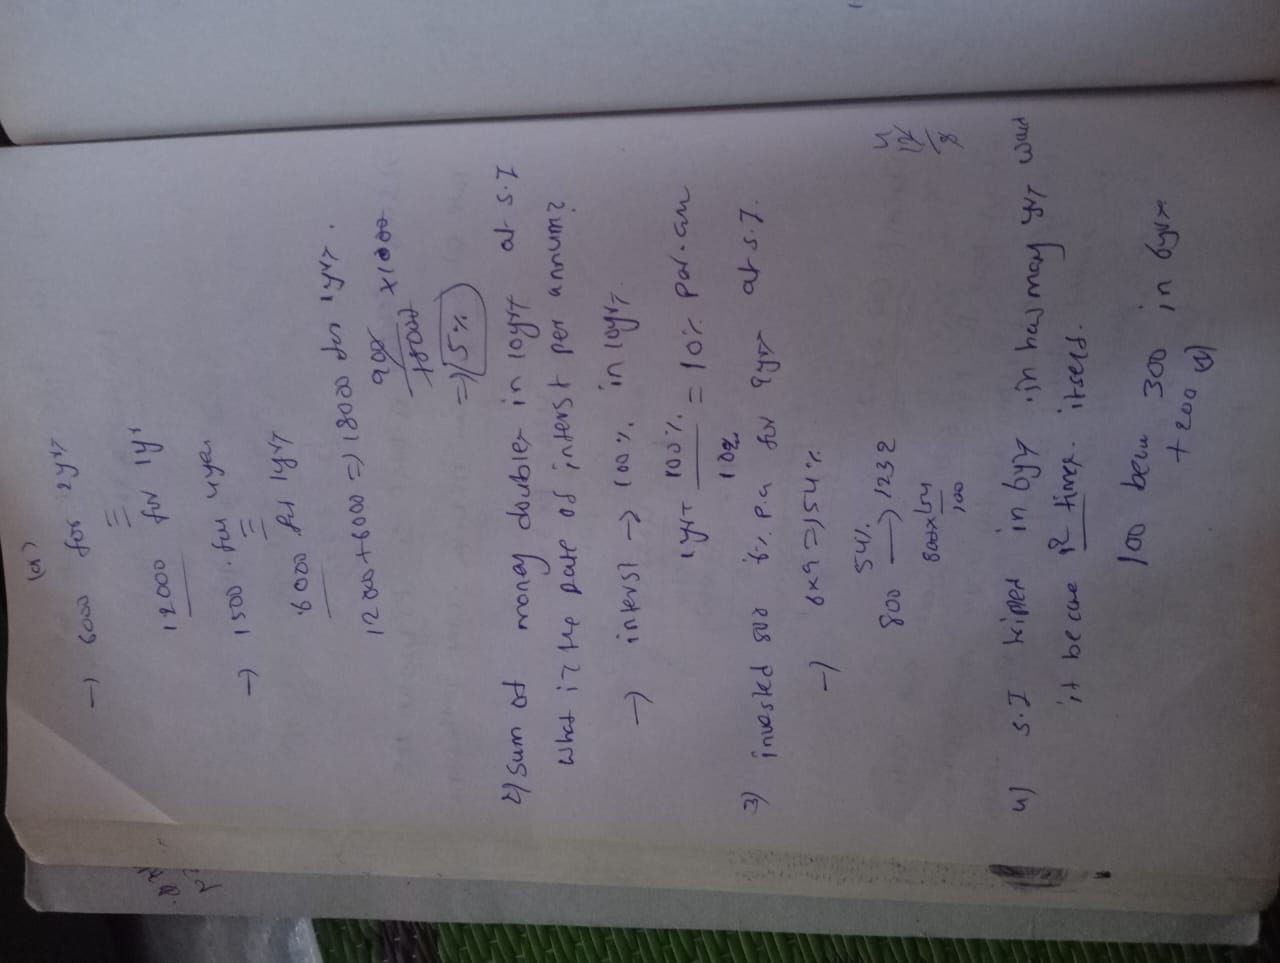 (a)
→ 6000 for 2yrs
12000 for 1yr
→ 1500 for 4year
6000 for 1yrs
12000+6000 => 18000 for 1yrs.
900/18000 x1000
=> 5%
2) Sum of money doubles in 10yrs at S.I
What is the rate of interst per annum?
→ interst → 100% in 10yrs.
1yrs 100%/10 = 10% per.an
3) invested 800 6% p.a for 9yrs at S.I.
→ 6x9 => 54%
54%
800 → 1232
800x54/100
4) S.I triples in 6yrs in how many yrs would
it became times itself.
100 becm 300 in 6yrs
+200